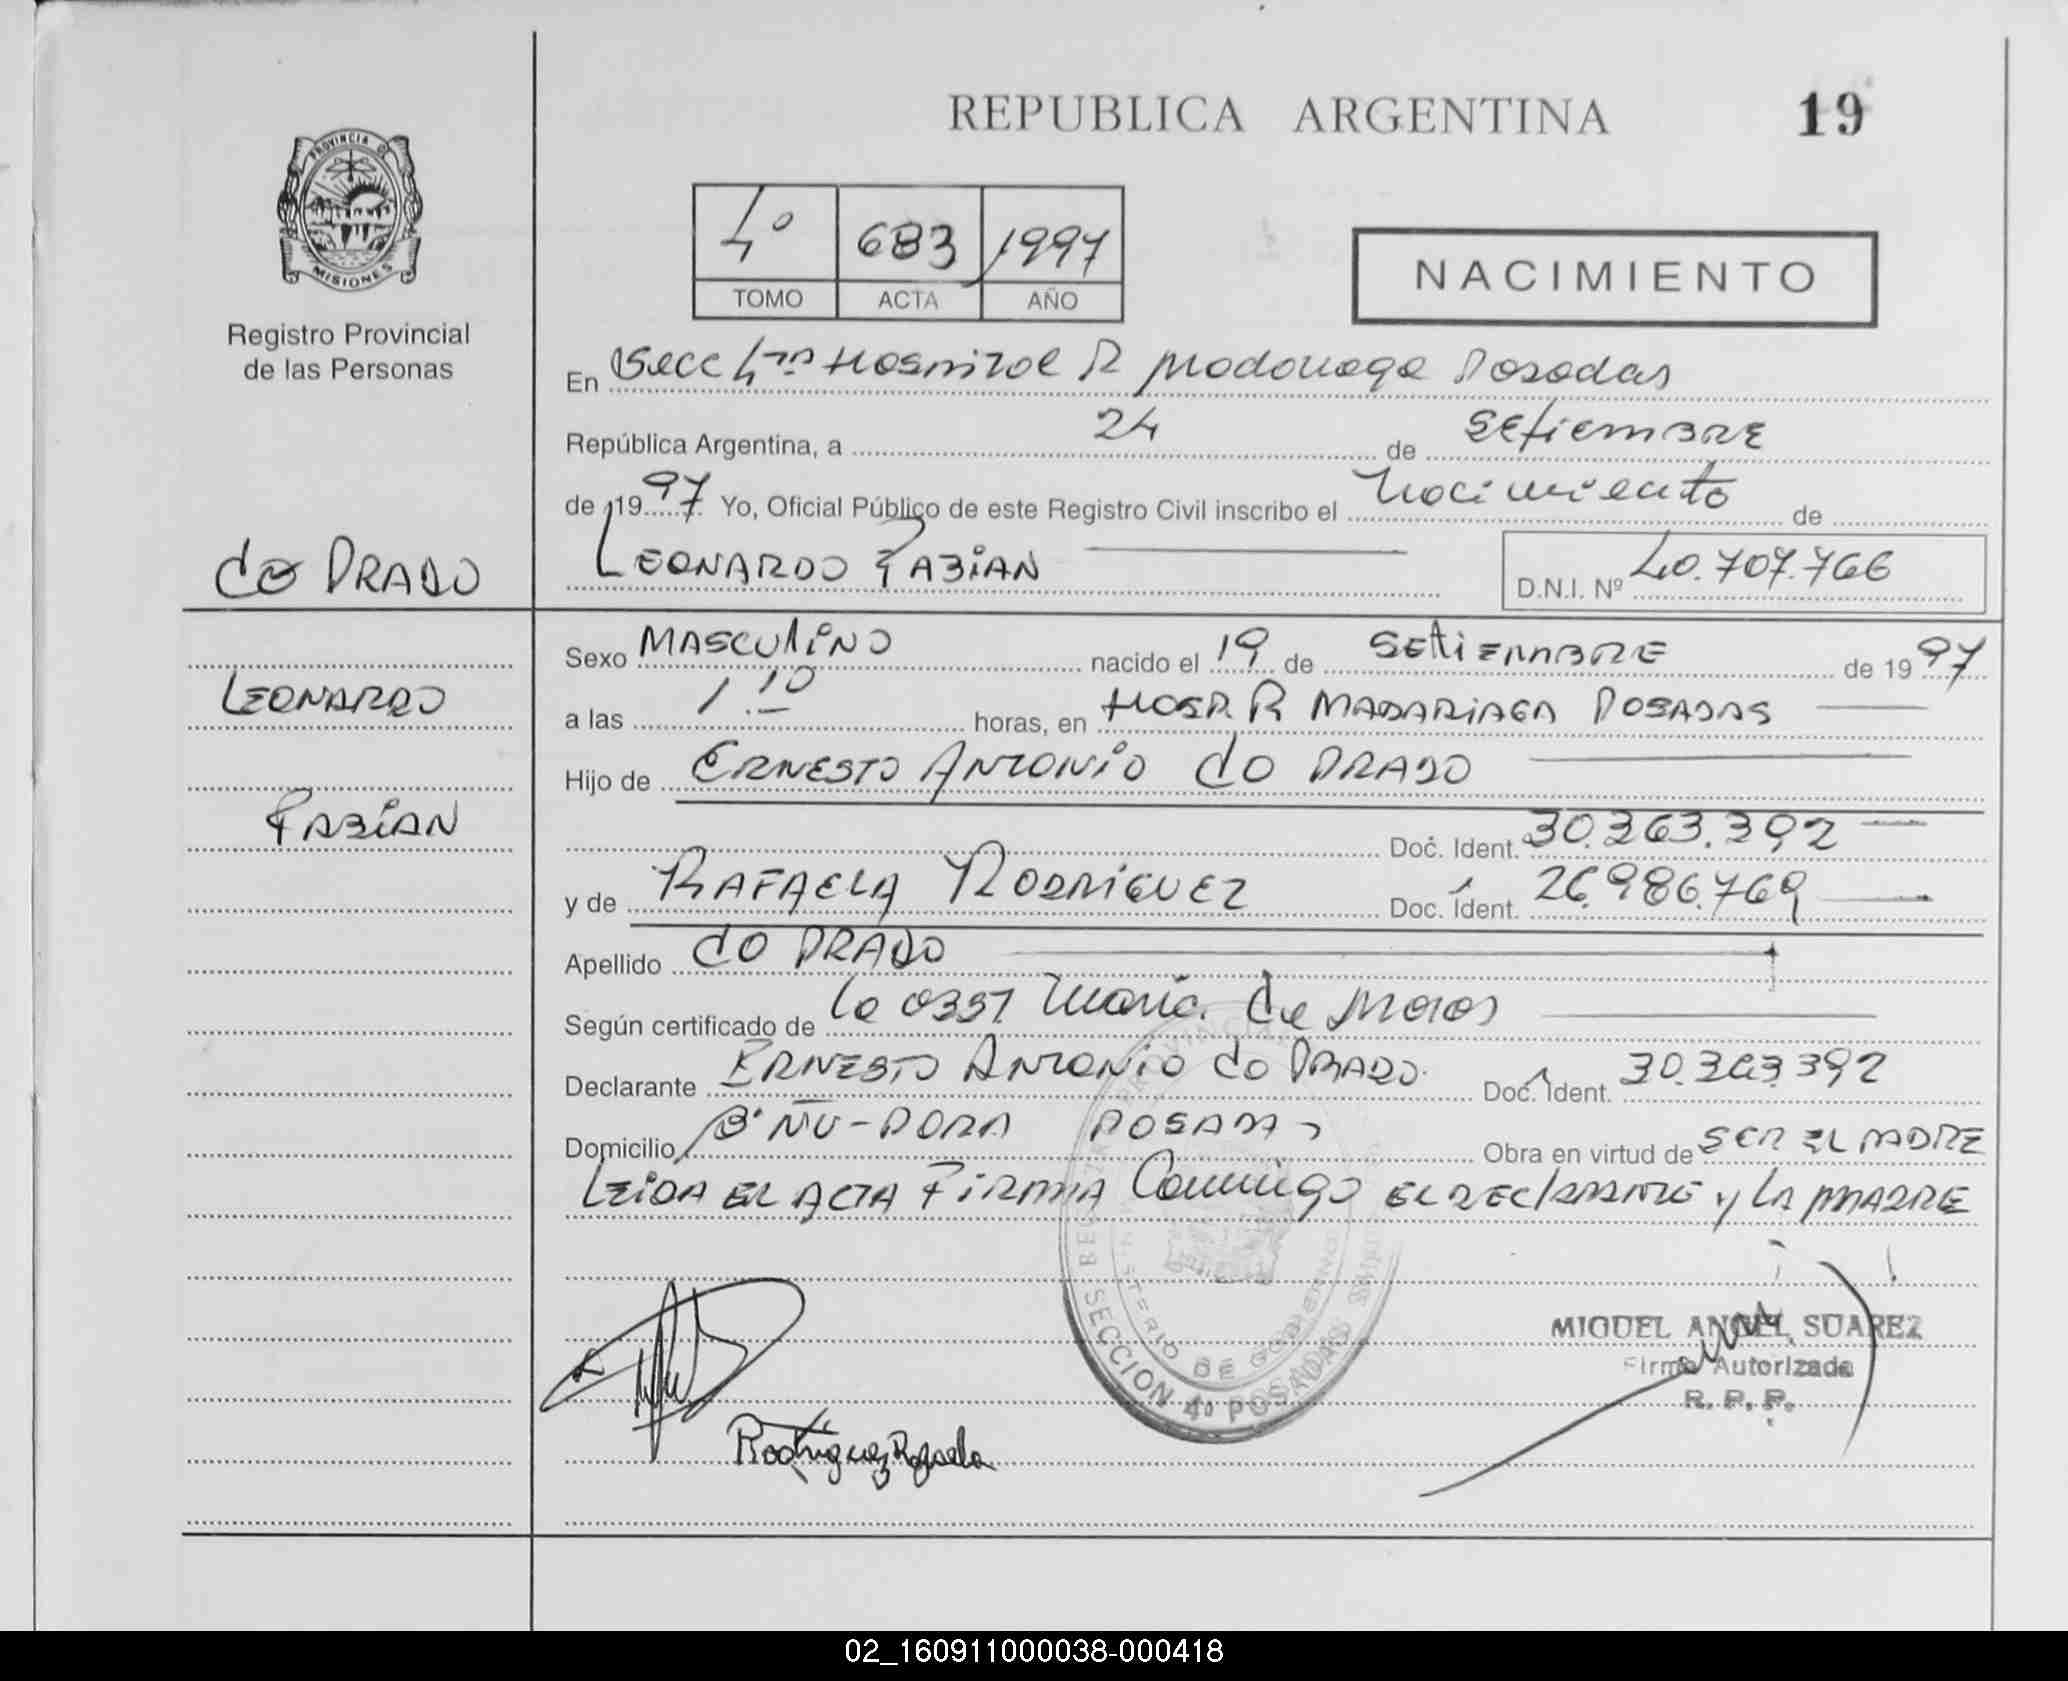 REPUBLICA ARGENTINA
19
PROVINCIA DE
MISIONES
Registro Provincial
de las Personas
4º 683 1997
TOMO ACTA AÑO
NACIMIENTO
En Secc 4ta Hospital R Madariaga Posadas
República Argentina, a 24 de SEtiEMBRE
de 1997. Yo, Oficial Público de este Registro Civil inscribo el Nacimiento de
LEONARDO FABiAN
D.N.I. Nº 40.707.766
do PRADO
LEONARDO
FABiAN
Sexo MASCULiNO nacido el 19 de SEtiEMBRE de 1997
a las 1.10 horas, en HOSP. R MADARiAGA POSADAS
Hijo de ERNESTO ANTONiO do PRADO
Doc. Ident. 30.363.392
y de RAFAELA RODRiGUEZ Doc. Ident. 26.986.769
Apellido do PRADO
Según certificado de la María de
Declarante ERNESTO ANTONiO do PRADO. Doc. Ident. 30.363.392
Domicilio Bº ÑU-PORA POSADAS Obra en virtud de SER EL PADRE
LEiDA EL ACTA FiRMA Conmigo EL DEClARANTE y LA MADRE
MINISTERIO DE GOBIERNO
SECCION 4º POSADAS
MIGUEL ANGEL SUAREZ
Firma Autorizada
R. P. P.
Rodriguez Rafaela
02_160911000038-000418